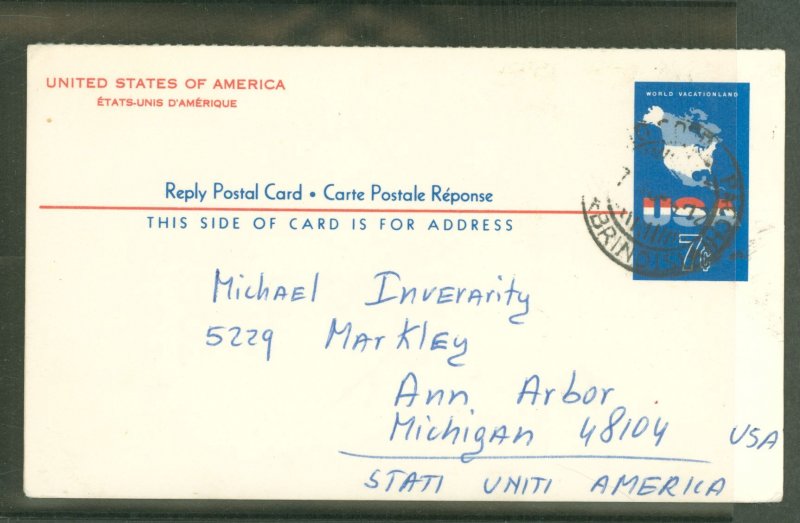 UNITED STATES OF AMERICA
ÉTATS-UNIS D'AMÉRIQUE
WORLD VACATIONLAND
USA
7¢
Reply Postal Card • Carte Postale Réponse
THIS SIDE OF CARD IS FOR ADDRESS
Michael Inverarity
5229 Markley
Ann Arbor
Michigan 48104 USA
STATI UNITI AMERICA